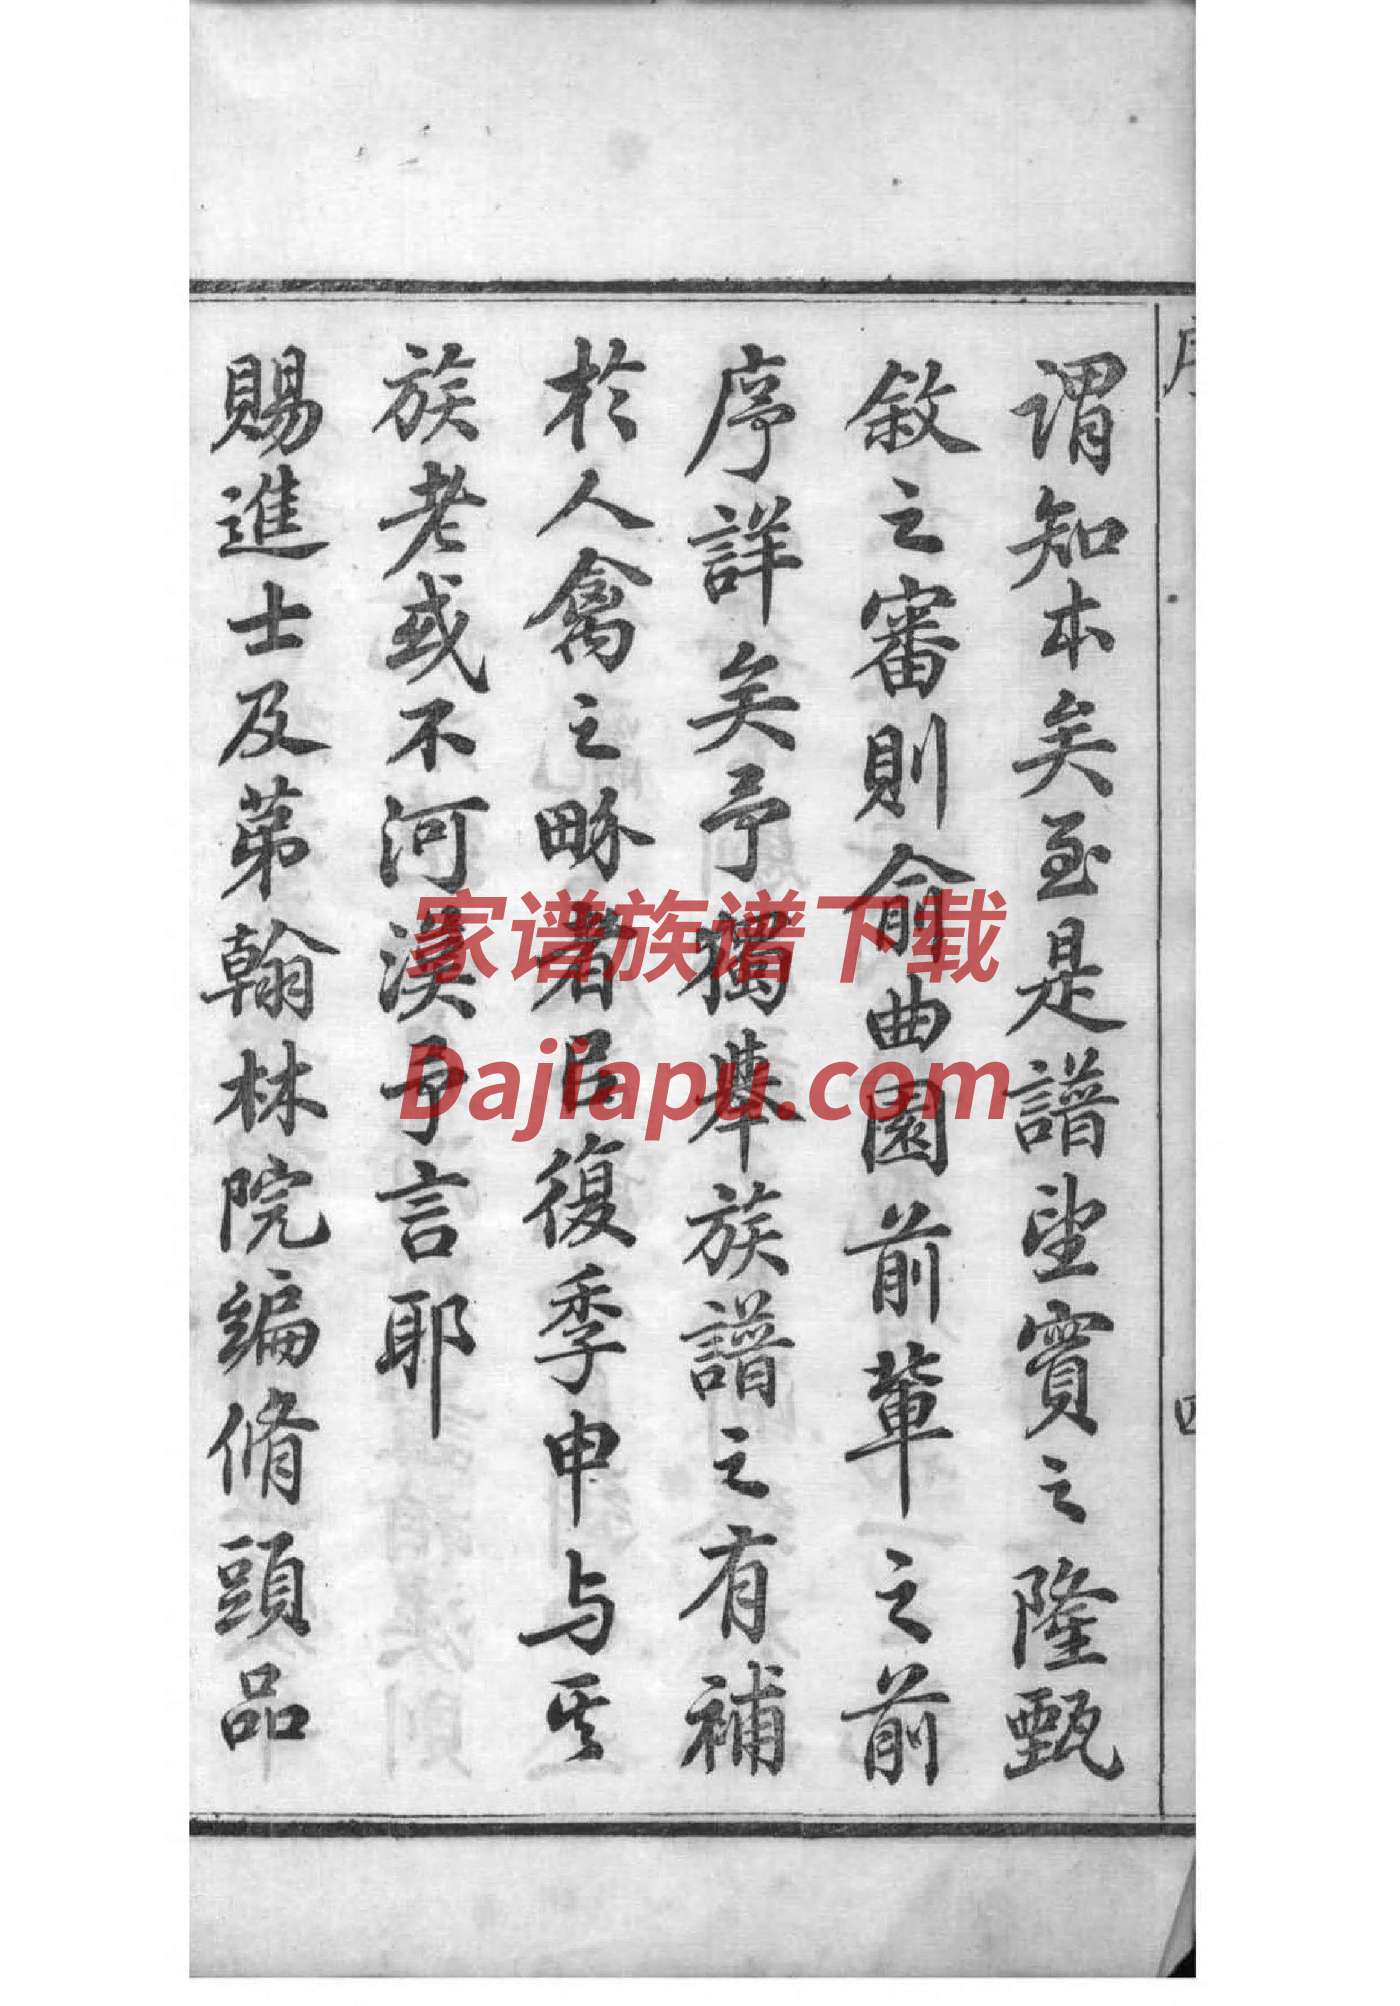 謂知本矣至是譜望實之隆甄
敘之審則俞曲園前輩之前
序詳矣予獨舉族譜之有補
於人禽之畛者臣復季申与其
族老或不河漢予言耶
賜進士及第翰林院編脩頭品
序
四
家谱族谱下载
Dajiapu.com